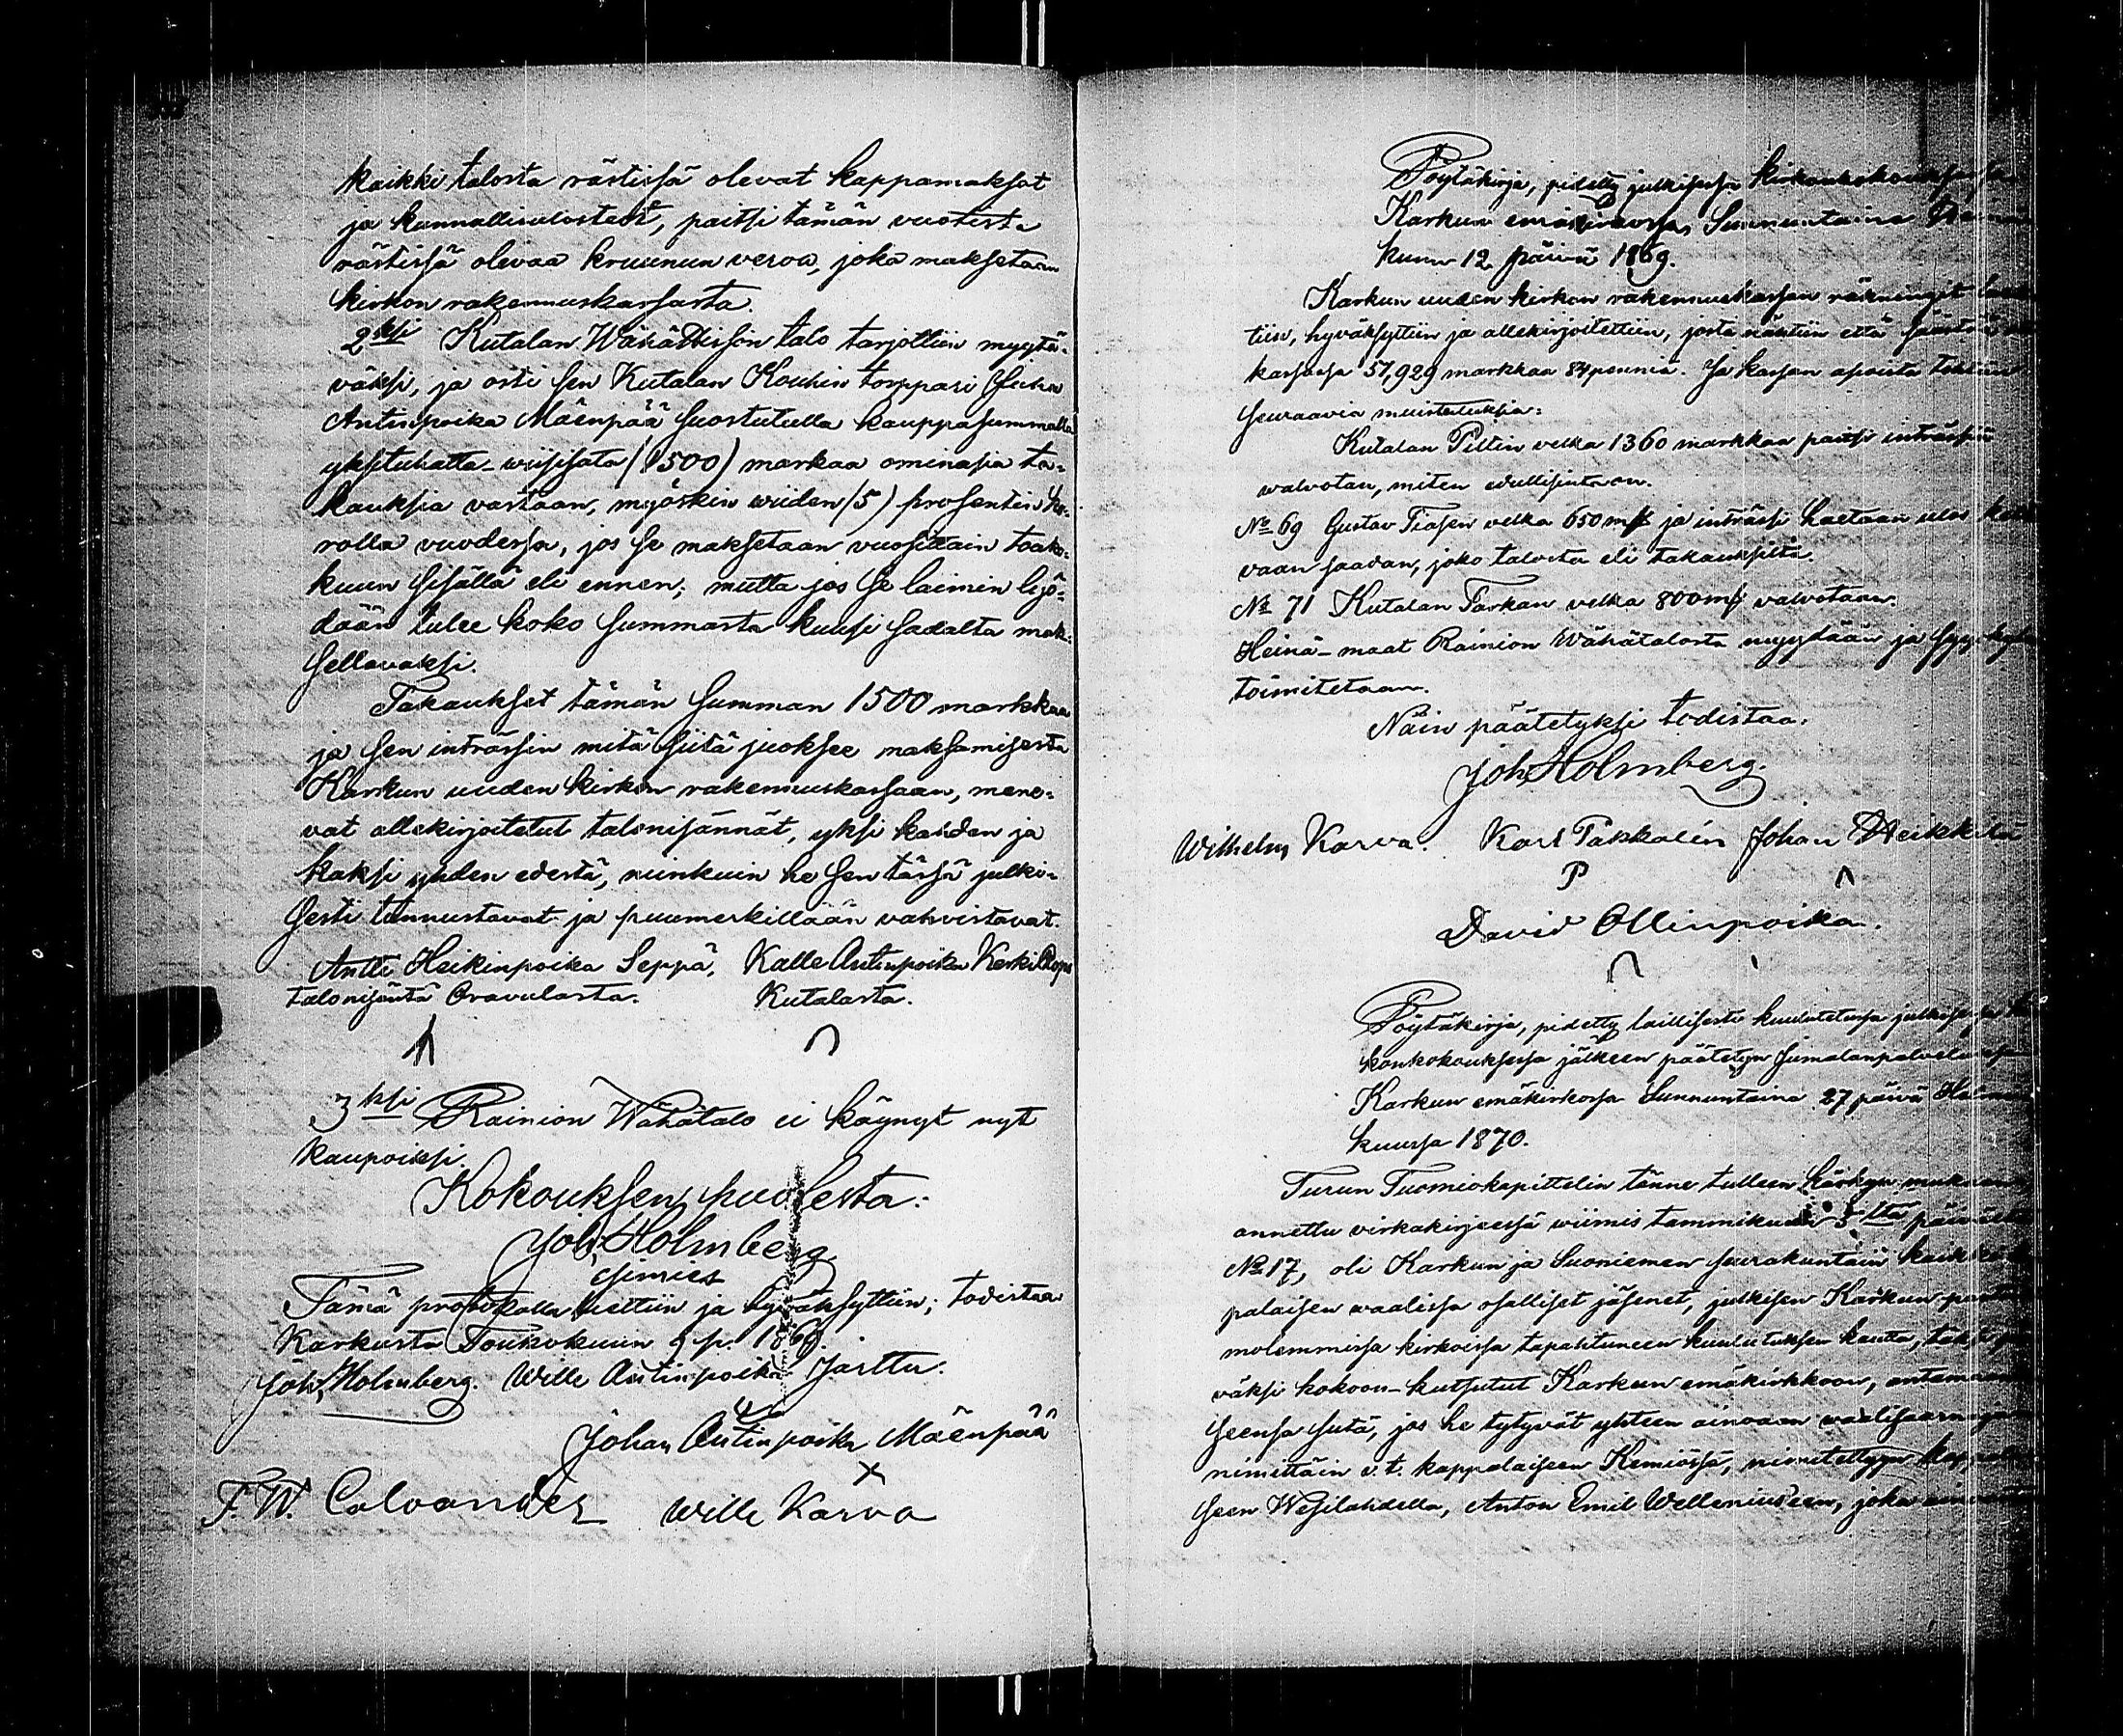 kaikki talosta rästissä olevat kappamaksot
ja kunnallisulosteot, paitsi tämän vuotista
rästissä olevaa kruunun veroa, joka maksetaan
kirkon rakennuskassasta.
2ksi Kutalan Wähättisson talo tarjottiin myytä-
väksi, ja osti sen Kutalan Kouhin torppari Juha
Antinpoika Mäenpää suostutulla kauppasummalla
yksituhatta-wiisisata (1500) markaa ominasia ta-
kauksia vastaan, myöskin wiiden (5) prosentin ko-
rolla vuodessa, jos se maksetaan vuosittain touko-
kuun sisällä eli ennen; mutta jos se laimin lyö-
dään tulee koko summasta kuusi sadalta mak-
settavaksi.
Takaukset tämän summan 1500 markkaa
ja sen intrassin mitä siitä juoksee maksamisesta
Karkun uuden kirkon rakennuskassaan, mene-
vat allekirjoitetut talonisännät, yksi kahden ja
kaksi yhden edestä, niinkuin he sen tässä julki-
sesti tunnustavat ja puumerkillään vahvistavat.
Antti Heikinpoika Seppä, Kalle Antinpoika Keski
talonisäntä Oravulasta. Kutalasta.
3ksi Rainion Wähätalo ei käynyt nyt
kaupoiksi.
Kokouksen puolesta:
Joh. Holmberg
esimies
Tämä protokolla luettiin ja hyväksyttiin; todistaa
Karkusta Toukokuun 9 p. 1869.
Joh. Holmberg. Wille Antinpoika Jarttu.
Johan Antinpoika Mäenpää
X
F. W. Calvander Wille Karva
Pöytäkirja, pidetty julkisessa kirkonkokouksessa
Karkun emäkirkossa, Sunnuntaina
kuun 12 päivä 1869.
Karkun uuden kirkon rakennuskassan räkningit
tiin, hyväksyttiin ja allekirjoitettiin, josta nähtiin että säästö
kassassa 57,929 markkaa 84 penniä. Ja kassan asioista
seuraavia muistutuksia:
Kutalan Piltin velka 1360 markkaa paitsi intrassia
walvotan, miten edullisinta on.
No 69 Gustav Tiasen velka 650 mk ja intrassi haetaan ulos
vaan saadan, joko talosta eli takauksilta.
No 71 Kutalan Tarkan velka 800 mk valvotaan.
Heinä-maat Rainion Wähätalosta myydään ja
toimitetaan.
Näin päätetyksi todistaa:
Joh. Holmberg.
Wilhelm Karva. Karl Pakkalén Johan Heikkilä
P
David Ollinpoika.
Pöytäkirja, pidetty laillisesti kuulutetussa julkisessa
konkokouksessa jälkeen päätetyn Jumalanpalveluksen
Karkun emäkirkossa Sunnuntaina 27 päivä
kuussa 1870.
Turun Tuomiokapittelin tänne tulleen käskyn mukaan
annettu virkakirjeessä wiimis tammikuun 5ltä päivältä
No 17, oli Karkun ja Suoniemen seurakuntain kaikki
palaisen waalissa osalliset jäsenet, julkisen Karkun
molemmissa kirkoissa tapahtuneen kuulutuksen kautta,
väksi kokoon-kutsutut Karkun emäkirkkoon, antamaan
seensa siitä, jos he tytyvät yhteen ainoaan vaalisaarnaajaan
nimittäin v.t. kappalaiseen Kemiössä, nimitettyyn
seen Wesilahdella, Anton Emil Welleniuseen, joka